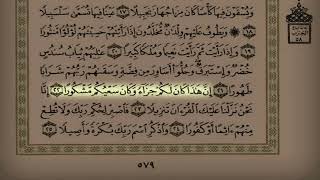 وَيُسْقَوْنَ فِيهَا كَأْسًا كَانَ مِزَاجُهَا زَنجَبِيلًا ١٧ عَيْنًا فِيهَا تُسَمَّىٰ سَلْسَبِيلًا
١٨ وَيَطُوفُ عَلَيْهِمْ وِلْدَٰنٌ مُّخَلَّدُونَ إِذَا رَأَيْتَهُمْ حَسِبْتَهُمْ لُؤْلُؤًا مَّنثُورًا
١٩ وَإِذَا رَأَيْتَ ثَمَّ رَأَيْتَ نَعِيمًا وَمُلْكًا كَبِيرًا ٢٠ عَٰلِيَهُمْ ثِيَابُ سُندُسٍ
خُضْرٌ وَإِسْتَبْرَقٌ وَحُلُّوٓا۟ أَسَاوِرَ مِن فِضَّةٍ وَسَقَىٰهُمْ رَبُّهُمْ شَرَابًا
طَهُورًا ٢١ إِنَّ هَٰذَا كَانَ لَكُمْ جَزَآءً وَكَانَ سَعْيُكُم مَّشْكُورًا ٢٢
إِنَّا نَحْنُ نَزَّلْنَا عَلَيْكَ ٱلْقُرْءَانَ تَنزِيلًا ٢٣ فَٱصْبِرْ لِحُكْمِ رَبِّكَ وَلَا تُطِعْ
مِنْهُمْ ءَاثِمًا أَوْ كَفُورًا ٢٤ وَٱذْكُرِ ٱسْمَ رَبِّكَ بُكْرَةً وَأَصِيلًا ٢٥
٥٧٩